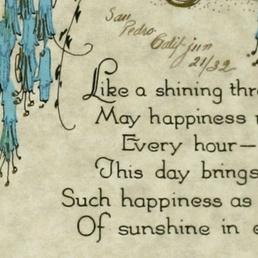 San
Pedro
Calif. Jun
21/32
Like a shining thr
May happiness
Every hour—
This day brings
Such happiness as
Of sunshine in